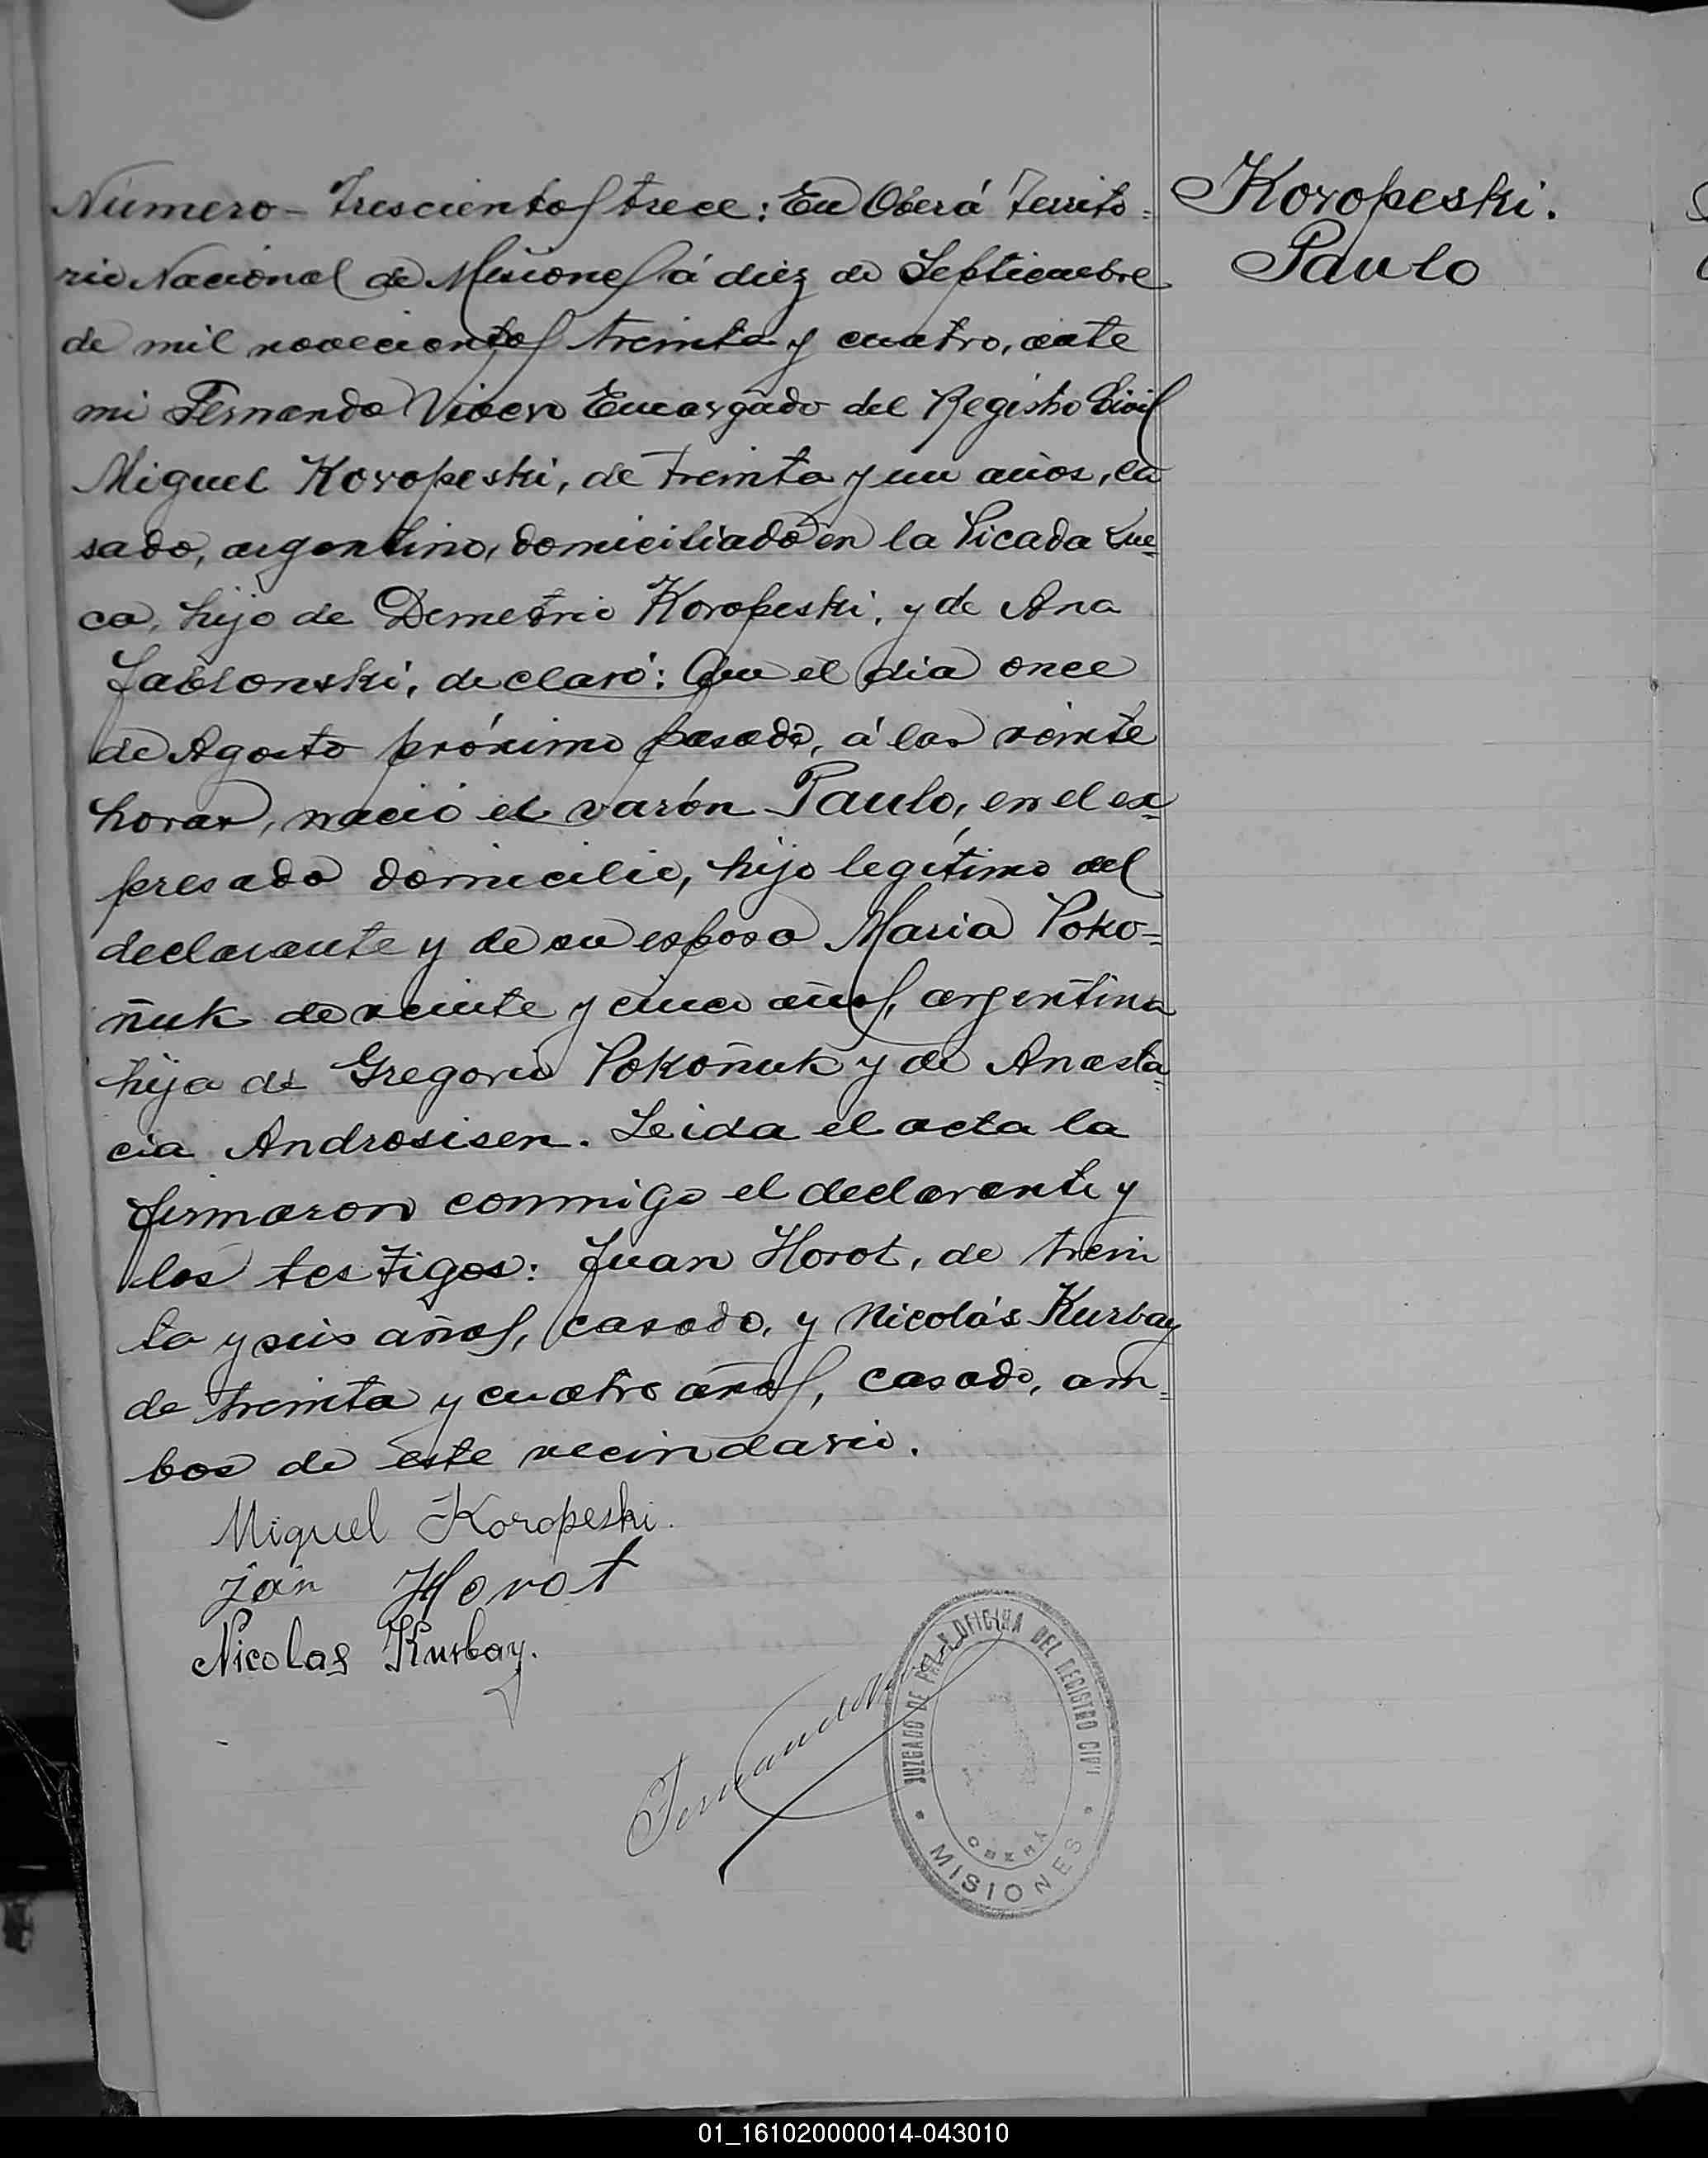 Número - Trescientos trece: En Oberá Territo=
rio Nacional de Misiones á diez de Septiembre
de mil novecientos treinta y cuatro, ante
mi Fernando Viaero Encargado del Registro Civil
Miguel Koropeski, de treinta y un años, ca
sado, argentino, domiciliado en la Picada Sue=
ca, hijo de Demetrio Koropeski, y de Ana
Jablonski, declaró: Que el dia once
de Agosto próximo pasado, á las veinte
horas, nació el varón Paulo, en el ex=
presado domicilio, hijo legítimo del
declarante y de su esposa Maria Poko=
ñuk de veinte y cinco años, argentina
hija de Gregorio Pokoñuk y de Anasta=
cia Androsisen. Leida el acta la
firmaron conmigo el declarante y
los testigos: Juan Horot, de trein
ta y seis años, casado, y Nicolás Kurbay
de treinta y cuatro años, casado, am=
bos de este vecindario.
Miguel Koropeski.
Jan Horot
Nicolas Kurbay.
Fernando
JUZGADO DE PAZ Y OFICINA DEL REGISTRO CIVIL
OBERÁ
* MISIONES *
Koropeski.
Paulo
01_161020000014-043010